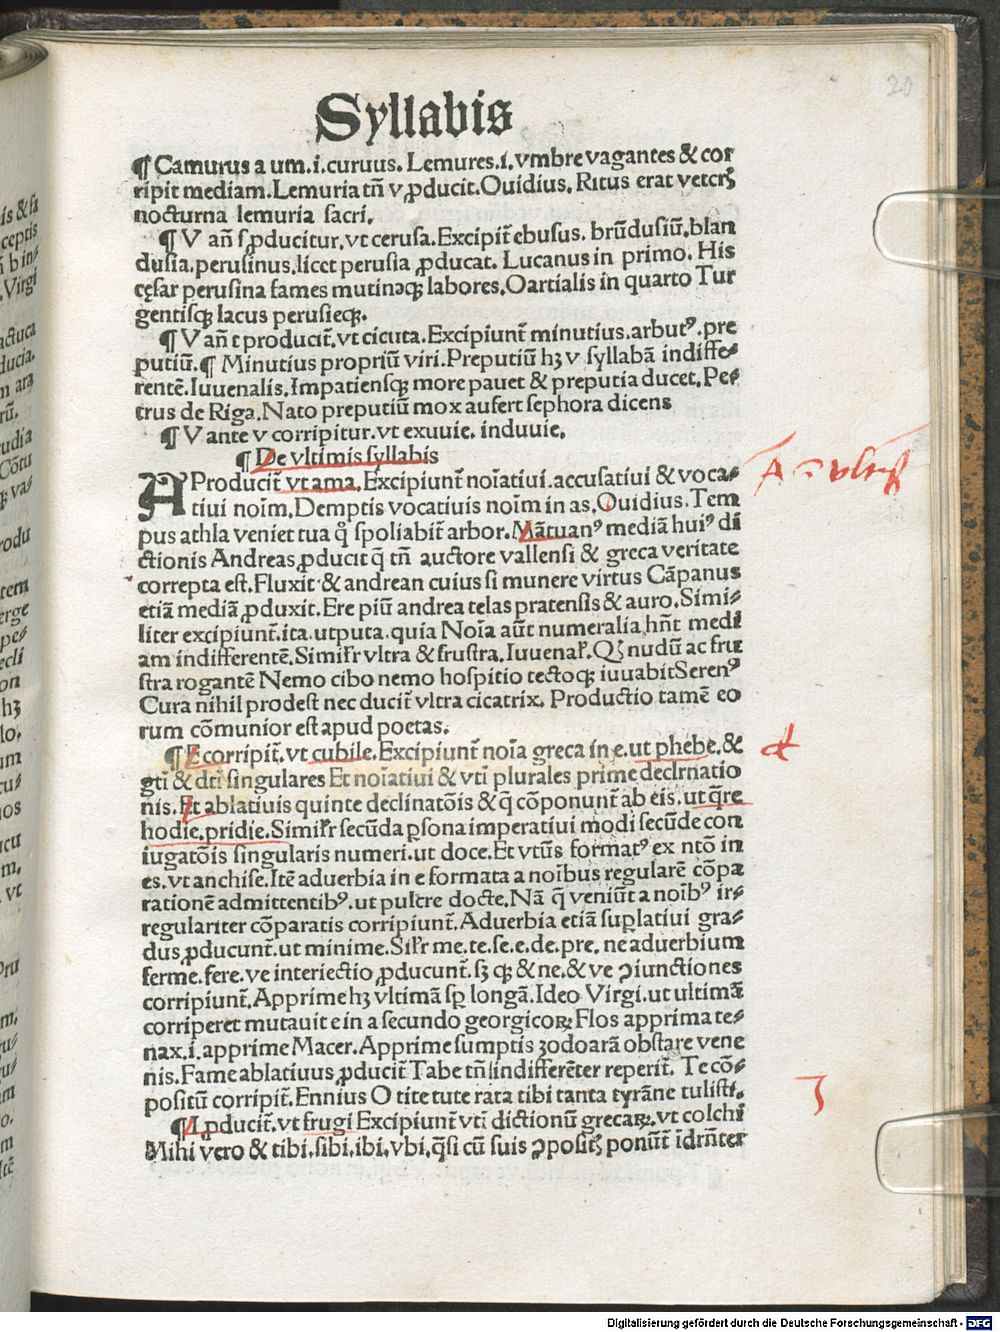 20
Syllabis
¶ Camurus a um.i.curuus. Lemures.i.vmbre vagantes & cor
ripit mediam.Lemuria tñ v ꝓducit.Ouidius. Ritus erat veterꝫ
nocturna lemuria sacri.
¶ V añ s ꝓducitur.vt cerusa.Excipit̄ ebusus. brūdusiū,blan
dusia.perusinus.licet perusia ꝓducat. Lucanus in primo. His
cęsar perusina fames mutinęqꝫ labores.Oartialis in quarto Tur
gentisqꝫ lacus perusieqꝫ.
¶ V añ t producit̄.vt cicuta.Excipiunt̄ minutius.arbutꝰ.pre
putiū.¶ Minutius propriū viri.Preputiū hꝫ v syllabā indiffe⸗
rentē.Iuuenalis.Impatiensqꝫ more pauet & preputia ducet.Pe⸗
trus de Riga.Nato preputiū mox aufert sephora dicens
¶ V ante v corripitur.vt exuuie. induuie.
¶ De vltimis syllabis
A Producit̄ vt ama.Excipiunt̄ noīatiui.accusatiui & voca⸗
tiui noīm.Demptis vocatiuis noīm in as.Ouidius.Tem
pus athla veniet tua qͦ spoliabit̄ arbor.Mātuanꝰ mediā huiꝰ di
ctionis Andreas ꝓducit q̄ tñ auctore vallensi & greca veritate
correpta est.Fluxit & andrean cuius si munere virtus Cāpanus
etiā mediā ꝓduxit. Ere piū andrea telas pratensis & auro.Simi⸗
liter excipiunt̄.ita.utputa.quia Noīa aūt numeralia hñt medi
am indifferentē.Simil'r vltra & frustra.Iuuenal'. Qꝫ nudū ac fru
stra rogantē Nemo cibo nemo hospitio tectoqꝫ iuuabit Serenꝰ
Cura nihil prodest nec ducit̄ vltra cicatrix. Productio tamē eo
rum cōmunior est apud poetas.
¶ E corripit̄.vt cubile.Excipiunt̄ noīa greca in e.ut phebe.&
gti & dti singulares Et noīatiui & vti plurales prime declrnatio
nis.Et ablatiuis quinte declinatōis & q̄ cōponunt̄ ab eis.ut q̄re
hodie.pridie.Simil'r secūda ꝑsona imperatiui modi secūde con
iugatōis singularis numeri.ut doce.Et vtūs formatꝰ ex ntō in
es.vt anchise.Itē aduerbia in e formata a noībus regularē cōpa
rationē admittentibꝰ.ut pulcre docte.Nā q̄ veniūt a noībꝰ ir⸗
regulariter cōparatis corripiunt̄.Aduerbia etiā suꝑlatiui gra⸗
dus ꝓducunt̄.ut minime.Sil'r me.te.se.e.de.pre. ne aduerbium
ferme.fere.ve interiectio ꝓducunt̄.sꝫ qꝫ & ne.& ve ↄiunctiones
corripiunt̄.Apprime hꝫ vltimā sꝑ longā.Ideo Virgi.ut ultimā
corriperet mutauit e in a secundo georgicoꝝ Flos apprima te⸗
nax.i.apprime Macer.Apprime sumptis ꝫodoarā obstare vene
nis.Fame ablatiuus ꝓducit̄ Tabe tñ indifferēter reperit̄. Te cō⸗
positū corripit̄.Ennius O tite tute rata tibi tanta tyrāne tulisti.
¶ I ꝓducit̄.vt frugi Excipiunt̄ vti dictionū grecaꝝ.vt colchi
Mihi vero & tibi.sibi.ibi.vbi.q̄si cū suis ↄpositꝭ ponūt̄ idrñter
Digitalisierung gefördert durch die Deutsche Forschungsgemeinschaft - DFG